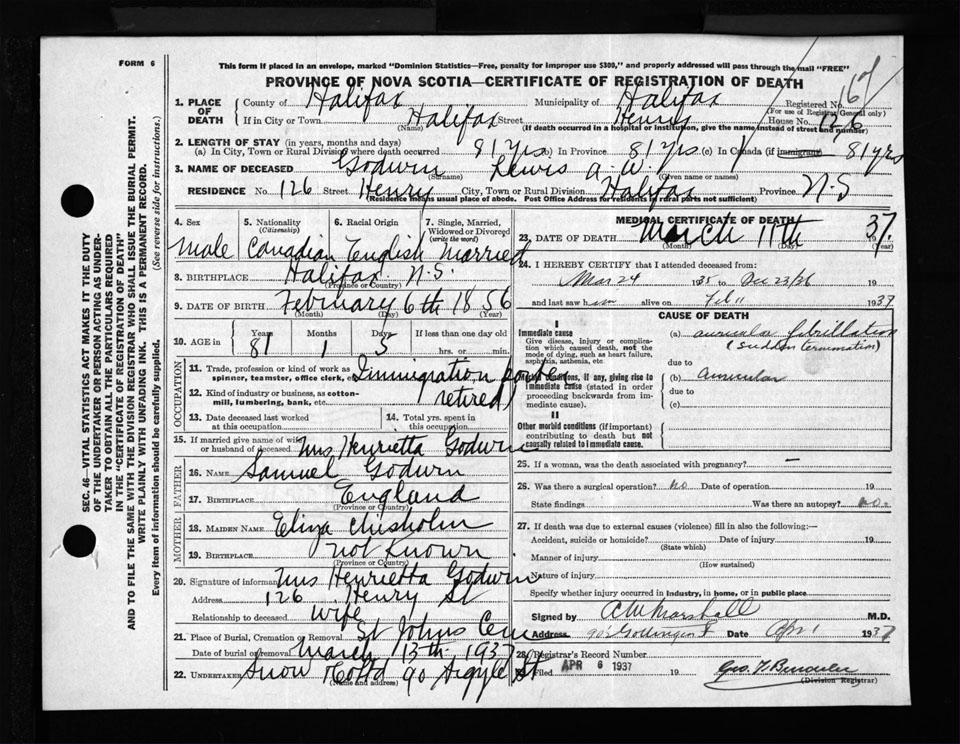 FORM 6
This form if placed in an envelope, marked "Dominion Statistics—Free, penalty for improper use $300," and properly addressed will pass through the mail "FREE"
PROVINCE OF NOVA SCOTIA—CERTIFICATE OF REGISTRATION OF DEATH
SEC. 46—VITAL STATISTICS ACT MAKES IT THE DUTY
OF THE UNDERTAKER OR PERSON ACTING AS UNDER-
TAKER TO OBTAIN ALL THE PARTICULARS REQUIRED
IN THE "CERTIFICATE OF REGISTRATION OF DEATH"
AND TO FILE THE SAME WITH THE DIVISION REGISTRAR WHO SHALL ISSUE THE BURIAL PERMIT.
WRITE PLAINLY WITH UNFADING INK. THIS IS A PERMANENT RECORD.
Every item of information should be carefully supplied. (See reverse side for instructions.)
1. PLACE OF DEATH County of Halifax Municipality of Halifax Registered No. 167
(For use of Registrar General only)
If in City or Town Halifax Street Henry House No. 126
(Name) (If death occurred in a hospital or institution, give the name instead of street and number)
2. LENGTH OF STAY (in years, months and days)
(a) In City, Town or Rural Division where death occurred 81 yrs (b) In Province 81 yrs (c) In Canada (if immigrant) 81 yrs
3. NAME OF DECEASED Godwin Lewis A. W.
(Surname) (Given name or names)
RESIDENCE No. 126 Street Henry City, Town or Rural Division Halifax Province N-S
(Residence means usual place of abode. Post Office Address for residents in rural parts not sufficient)
4. Sex 5. Nationality (Citizenship) 6. Racial Origin 7. Single, Married, Widowed or Divorced (write the word)
Male Canadian English Married
8. BIRTHPLACE Halifax N.S.
(Province or Country)
9. DATE OF BIRTH February 6th 1856
(Month) (Day) (Year)
10. AGE in Years Months Days If less than one day old
81 1 5 hrs. or min.
OCCUPATION
11. Trade, profession or kind of work as spinner, teamster, office clerk, etc. Immigration porter
12. Kind of industry or business, as cotton-mill, lumbering, bank, etc. retired)
13. Date deceased last worked at this occupation 14. Total yrs. spent in this occupation
15. If married give name of wife or husband of deceased Mrs Henrietta Godwin
FATHER
16. NAME Samuel Godwin
17. BIRTHPLACE England
(Province or Country)
MOTHER
18. MAIDEN NAME Eliza Chisholm
19. BIRTHPLACE not known
(Province or Country)
20. Signature of informant Mrs Henrietta Godwin
Address 126 Henry St
Relationship to deceased Wife
21. Place of Burial, Cremation or Removal St Johns Cem
Date of burial or removal March 13th 1937
22. UNDERTAKER Snow & Co Ltd 90 Argyle St
(Name and address)
MEDICAL CERTIFICATE OF DEATH
23. DATE OF DEATH March 11th 1937
(Month) (Day) (Year)
24. I HEREBY CERTIFY that I attended deceased from:
Mar 24 1935 to Dec 23/36 19
and last saw him alive on Feb 11 1937
CAUSE OF DEATH
I
Immediate cause
Give disease, injury or complication which caused death, not the mode of dying, such as heart failure, asphyxia, asthenia, etc.
(a) auricular fibrillation
(sudden termination)
due to
Morbid conditions, if any, giving rise to immediate cause (stated in order proceeding backwards from immediate cause).
(b) auricular
due to
(c)
II
Other morbid conditions (if important) contributing to death but not causally related to immediate cause.
25. If a woman, was the death associated with pregnancy? —
26. Was there a surgical operation? no Date of operation 19
State findings Was there an autopsy? no.
27. If death was due to external causes (violence) fill in also the following:—
Accident, suicide or homicide? Date of injury 19
(State which)
Manner of injury
(How sustained)
Nature of injury
Specify whether injury occurred in industry, in home, or in public place
Signed by Marshall M.D.
Address Date Apr 1 1937
28. Registrar's Record Number
Filed APR 6 1937 19 Geo.
(Division Registrar)